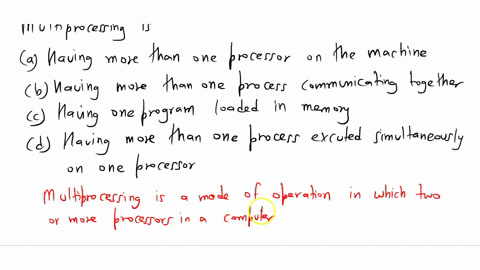 Multiprocessing is
(a) Having more than one processor on the machine
(b) Having more than one process communicating together
(c) Having one program loaded in memory
(d) Having more than one process excuted simultaneously
on one processor
Multiprocessing is a mode of operation in which two
or more processors in a computer